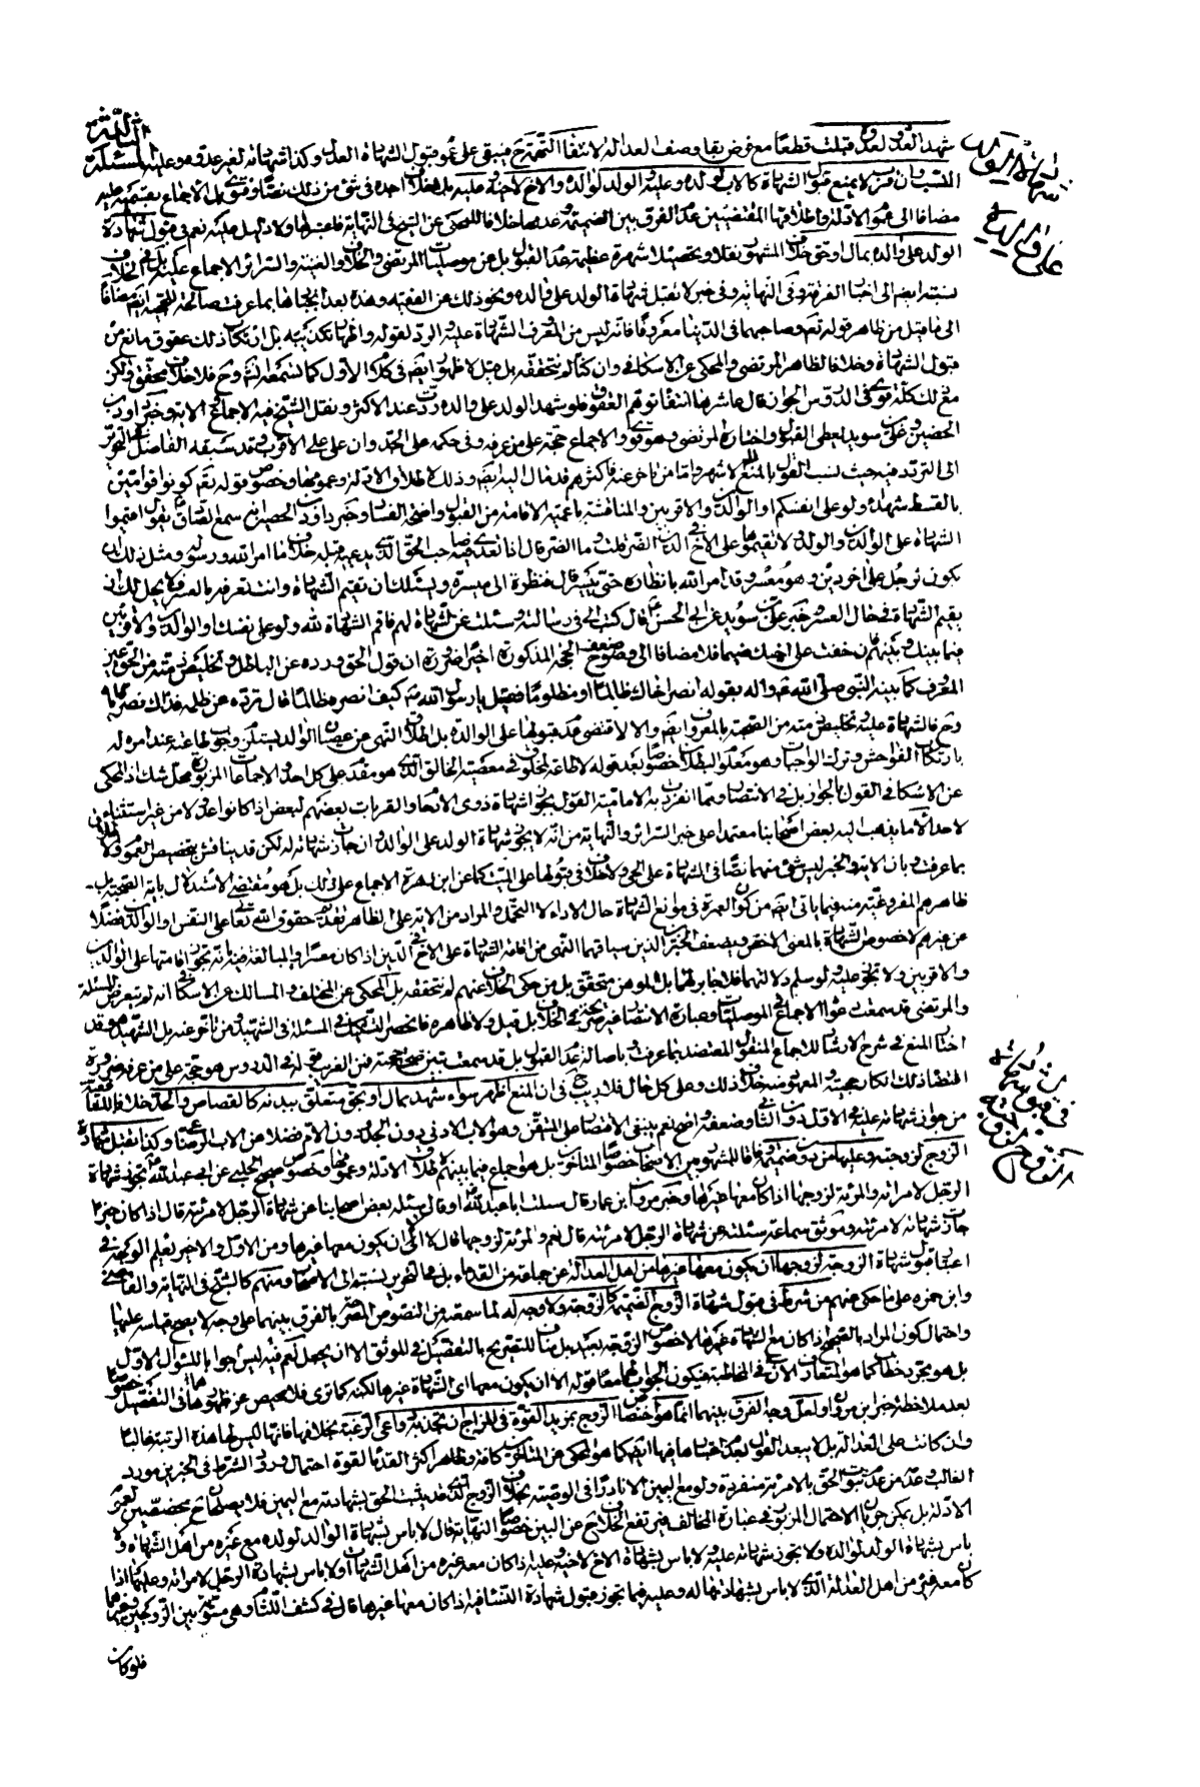 شهد العدو لعدوه قبلت قطعا مع فرض بقاء وصف العدالة لانتفاء التهمة ح فيبقى على عموم قبول شهادة العدل وكذا شهادته لغير عدوه وعليه المسئلة الثالثة
شهادة الولد
على والده
النسب وان قرب لا يمنع قبول الشهادة كالاب لولده وعليه والولد لوالده والاخ لاخيه وعليه بلا خلاف اجده في شئ من ذلك نصا وفتوى بل الاجماع بقسميه عليه
مضافا الى عموم الادلة واطلاقها المقتضيين عدم الفرق بين الضميمة وعدمها خلافا للمحكى عن الشيخ في النهاية فاعتبرها ولا دليل عليه نعم في قبول شهادة
الولد على والده بمال او حق خلاف المشهور نقلا وتحصيلا شهرة عظيمة عدم القبول بل عن موصليات المرتضى والخلاف والغنية والسرائر الاجماع عليه بل في الخلاف
نسبته ايضا الى اخبار الفرقة وفي النهاية وفي خبر لا تقبل شهادة الولد على والده ونحو ذلك عن الفقيه وهذه بعد انجبارها بما عرفت صالحة للحجية ايضا مضافا
الى ما قيل من ظاهر قوله تعم وصاحبهما في الدنيا معروفا فانه ليس من المعروف الشهادة عليه والرد لقوله واظهار تكذيبه بل ارتكاب ذلك عقوق مانع من
قبول الشهادة وخلافا لظاهر المرتضى والمحكى عن الاسكافي وان كنا لم نتحققه بل قيل لا ظهور ايضا في كلام الاول كما تسمعه انشاء الله وح فلا خلاف محقق ولكن
مع ذلك كله قوى في الدروس الجواز قال عاشرها انتفاء توهم العقوق فلو شهد الولد على والده ردت عند الاكثر ونقل الشيخ فيه الاجماع الاية وخبر داود بن
الحصين وعلى بن سويد يعطى القبول واختاره المرتضى وهو قوى والاجماع حجة على من عرفه وفي حكمه على الجد وان علا على الاقرب وقد سبقه الفاضل في التحرير
الى التردد فيه حيث نسب القول بالمنع الى الاشهر واما من تاخر عنه فاكثرهم قد مال اليه ايضا وذلك لاطلاق الادلة وعمومها وخصوص قوله تعم كونوا قوامين
بالقسط شهداء لله ولو على انفسكم او الوالدين والاقربين والمناقشة باعمية الاقامة من القبول واضحة الفساد وخبر داود بن الحصين انه سمع الصادق يقول اقيموا
الشهادة على الوالدين والولد ولا تقيموها على الاخ في الدين الضير قلت وما الضير قال اذا تعدى فيه صاحب الحق الذي يدعيه قبله خلاف ما امر الله ورسوله ومثل ذلك ان
يكون لرجل على اخر دين وهو معسر وقد امر الله بانظاره حتى ييسر قال فنظرة الى ميسرة ويسئلك ان تقيم الشهادة وانت تعرفه بالعسر فلا يحل لك ان
تقيم الشهادة في حال العسر وخبر على بن سويد عن ابى الحسن قال كتب الى في رسالته وسئلت عن الشهادة لهم فاقم الشهادة لله ولو على نفسك او الوالدين والاقربين
فيما بينك وبينهم فان خفت على اخيك ضيما فلا مضافا الى وضوح ضعف الحجج المذكورة اخيرا ضرورة ان قول الحق ورده عن الباطل وتخليص ذمته من الحق عين
المعروف كما بينه النبي صلى الله عليه واله بقوله انصر اخاك ظالما او مظلوما فقيل يارسول الله ص كيف انصره ظالما قال ترده عن ظلمه فذاك نصرك اياه
وح فالشهادة عليه وتخليص ذمته من الصحبة بالمعروف ايضا والا لاقتضى عدم قبولها على الوالدة بل اطلاق النهى عن عصيان الوالد يستلزم وجوب طاعته عند امره له
بارتكاب الفواحش وترك الواجبات وهو معلوم البطلان خصوصا بعد قوله لا طاعة لمخلوق في معصية الخالق الذي هو مقدم على كل احد والاجماعات المزبورة محل شك اذ المحكى
عن الاسكافي القول بالجواز بل في الانتصار ومما انفردت به الامامية القول بجواز شهادة ذوى الارحام والقرابات بعضهم لبعض اذا كانوا عدولا من غير استثناء في ذلك
لاحد الا ما يذهب اليه بعض اصحابنا معتمدا على خبر السرائر والنهاية من انه لا يجوز شهادة الولد على الوالد وان جازت شهادته له لكن قد يناقش بتخصيص العموم والاطلاق
بما عرفت وبان الاية والخبر ليس شئ منهما نصا في الشهادة على الحي ولا خلاف في قبولها على الميت كما عن ابن زهرة الاجماع على ذلك بل هو مقتضى الاستدلال باية الصحبة بل
ظاهرهم المفروغية منه فيما ياتى ايضا من كون العبرة في موانع الشهادة حال الاداء لا التحمل والمراد من الاية على الظاهر تقديم حقوق الله تعا على النفس والوالدين فضلا
عن غيرهم لا خصوص الشهادة بالمعنى الاخص ويضعف الخبرين الذين سياقهما النهى عن اقامة الشهادة على الاخ في الدين اذا كان معسرا والمبالغة فيه انه تجوز اقامتها على الوالدين
والاقربين ولا تجوز عليه ولو سلم دلالتهما فلا جابر لهما بل الموهن متحقق بل من حكى الخلاف عنهم لم نتحققه بل المحكى عن المختلف والمسالك عن الاسكافي انه لم يتعرض للمسئلة
والمرتضى قد سمعت دعواه الاجماع في الموصليات وعبارة الانتصار غير صريحة في الخلاف بل قيل ولا ظاهرة فانحصر التشكيك في المسئلة في الشهيد ومن تاخر عنه بل الشهيد هو قد
اختار المنع في شرح الارشاد للاجماع المنقول المعتضد بما عرفت وباصالة عدم القبول بل قد سمعت تبين صحة حجيته فمن الغريب قوله في الدروس هو حجة على من عرفه ضرورة
اقتضاء ذلك انكار حجيته والمعهود منه خلاف ذلك وعلى كل حال فلا ريب في ان المنع اظهر سواء شهد بمال او بحق متعلق ببدنه كالقصاص والحد خلافا للقا فقد
من جواز شهادته عليه في الاول دون الثاني وضعفه واضح نعم ينبغى الاقتصار على المتيقن وهو الاب الادنى دون الجد ودون الام فضلا عن الاب الرضاعي وكذا تقبل شهادة
في قبول شهادة
كل من الزوجين
الزوج لزوجته وعليها من دون ضميمة وفاقا للمشهور بين الاصحاب خصوصا المتاخرين بل هو اجماع فيما بينهم لاطلاق الادلة وعمومها وخصوص صحيح الحلبى عن ابى عبد الله ع تجوز شهادة
الرجل لامراته والمرئة لزوجها اذا كان معها غيرها وخبر عمار بن مروان قال سئلت ابا عبد الله او قال سئله بعض اصحابنا عن شهادة الرجل لامرئته قال اذا كان خيرا
جازت شهادته لامرئته وموثق سماعة سئلته عن شهادة الرجل لامرئته قال نعم والمرئة لزوجها قال لا الا ان يكون معها غيرها ومن الاول والاخير يعلم الوجه في
اعتبار قبول شهادة الزوجة لزوجها ان يكون معها غيرها من اهل العدالة عن جماعة من القدماء بل في التحرير نسبته الى الاصحاب ومنهم كالشيخ في النهاية والقاضي
وابن حمزه على ما حكى عنهم من شرط في قبول شهادة الزوج الضميمة كالزوجة ولا وجه له لما سمعته من النصوص المصرحة بالفرق بينهما على وجه لا يصح قياسه عليها
واحتمال كون المراد بالقيد اذا كان مع الشهادة غيرها لا خصوص الزوجة بعيد بل مناف للتصريح بالتفصيل في الموثق الا ان يجعل نعم فيه ليس جوابا للسئوال الاول
بل هو مجرد خطاب كما هو المتعارف الان في المخاطبة فيكون الجواب لهما معا قوله الا ان يكون معهما اى الشهادة غيرها لكنه كما ترى فلا محيص عن ظهورها في التفصيل خصوصا
بعد ملاحظة خبر ابن مروان ولعل وجه الفرق بينهما انما هو اختصاص الزوج بمزيد القوة في المزاج ان تجذبه دواعى الرغبة بخلافها فانها ليس لها هذه المرتبة غالبا
وان كانت على العدالة بل لا يبعد القول بعدم اعتبارها فيها ايضا كما هو المحكى عن المتاخرين كافة وظاهر اكثر القدماء القوة احتمال ورود الشرط في الخبرين مورد
الغالب وعدم من عدم ثبوت الحق بالامرئة منفردة ولو مع اليمين الا نادرا في الوصية بخلاف الزوج الذي قد يثبت الحق بشهادته مع اليمين فلا يصلحان ح مخصصين لعموم
الادلة بل يمكن جريان الاحتمال المزبور في عبارة المخالف فيرتفع الخلاف ح عن البين خصوصا النهاية قال لا باس بشهادة الوالد لولده مع غيره من اهل الشهادة ولا
باس بشهادة الولد لوالده ولا يجوز شهادته عليه ولا باس بشهادة الاخ لاخيه وعليه اذا كان معه غيره من اهل الشهادات ولا باس بشهادة الرجل لامراته وعليها اذا
كان معه غيره من اهل العدالة الذي لا باس بشهادتها له وعليه فيما تجوز قبول شهادة النساء فيه اذا كان معها غيرها قال في كشف اللثام وهي مشعرة بين الزوجين وغيرهما
فلو كان